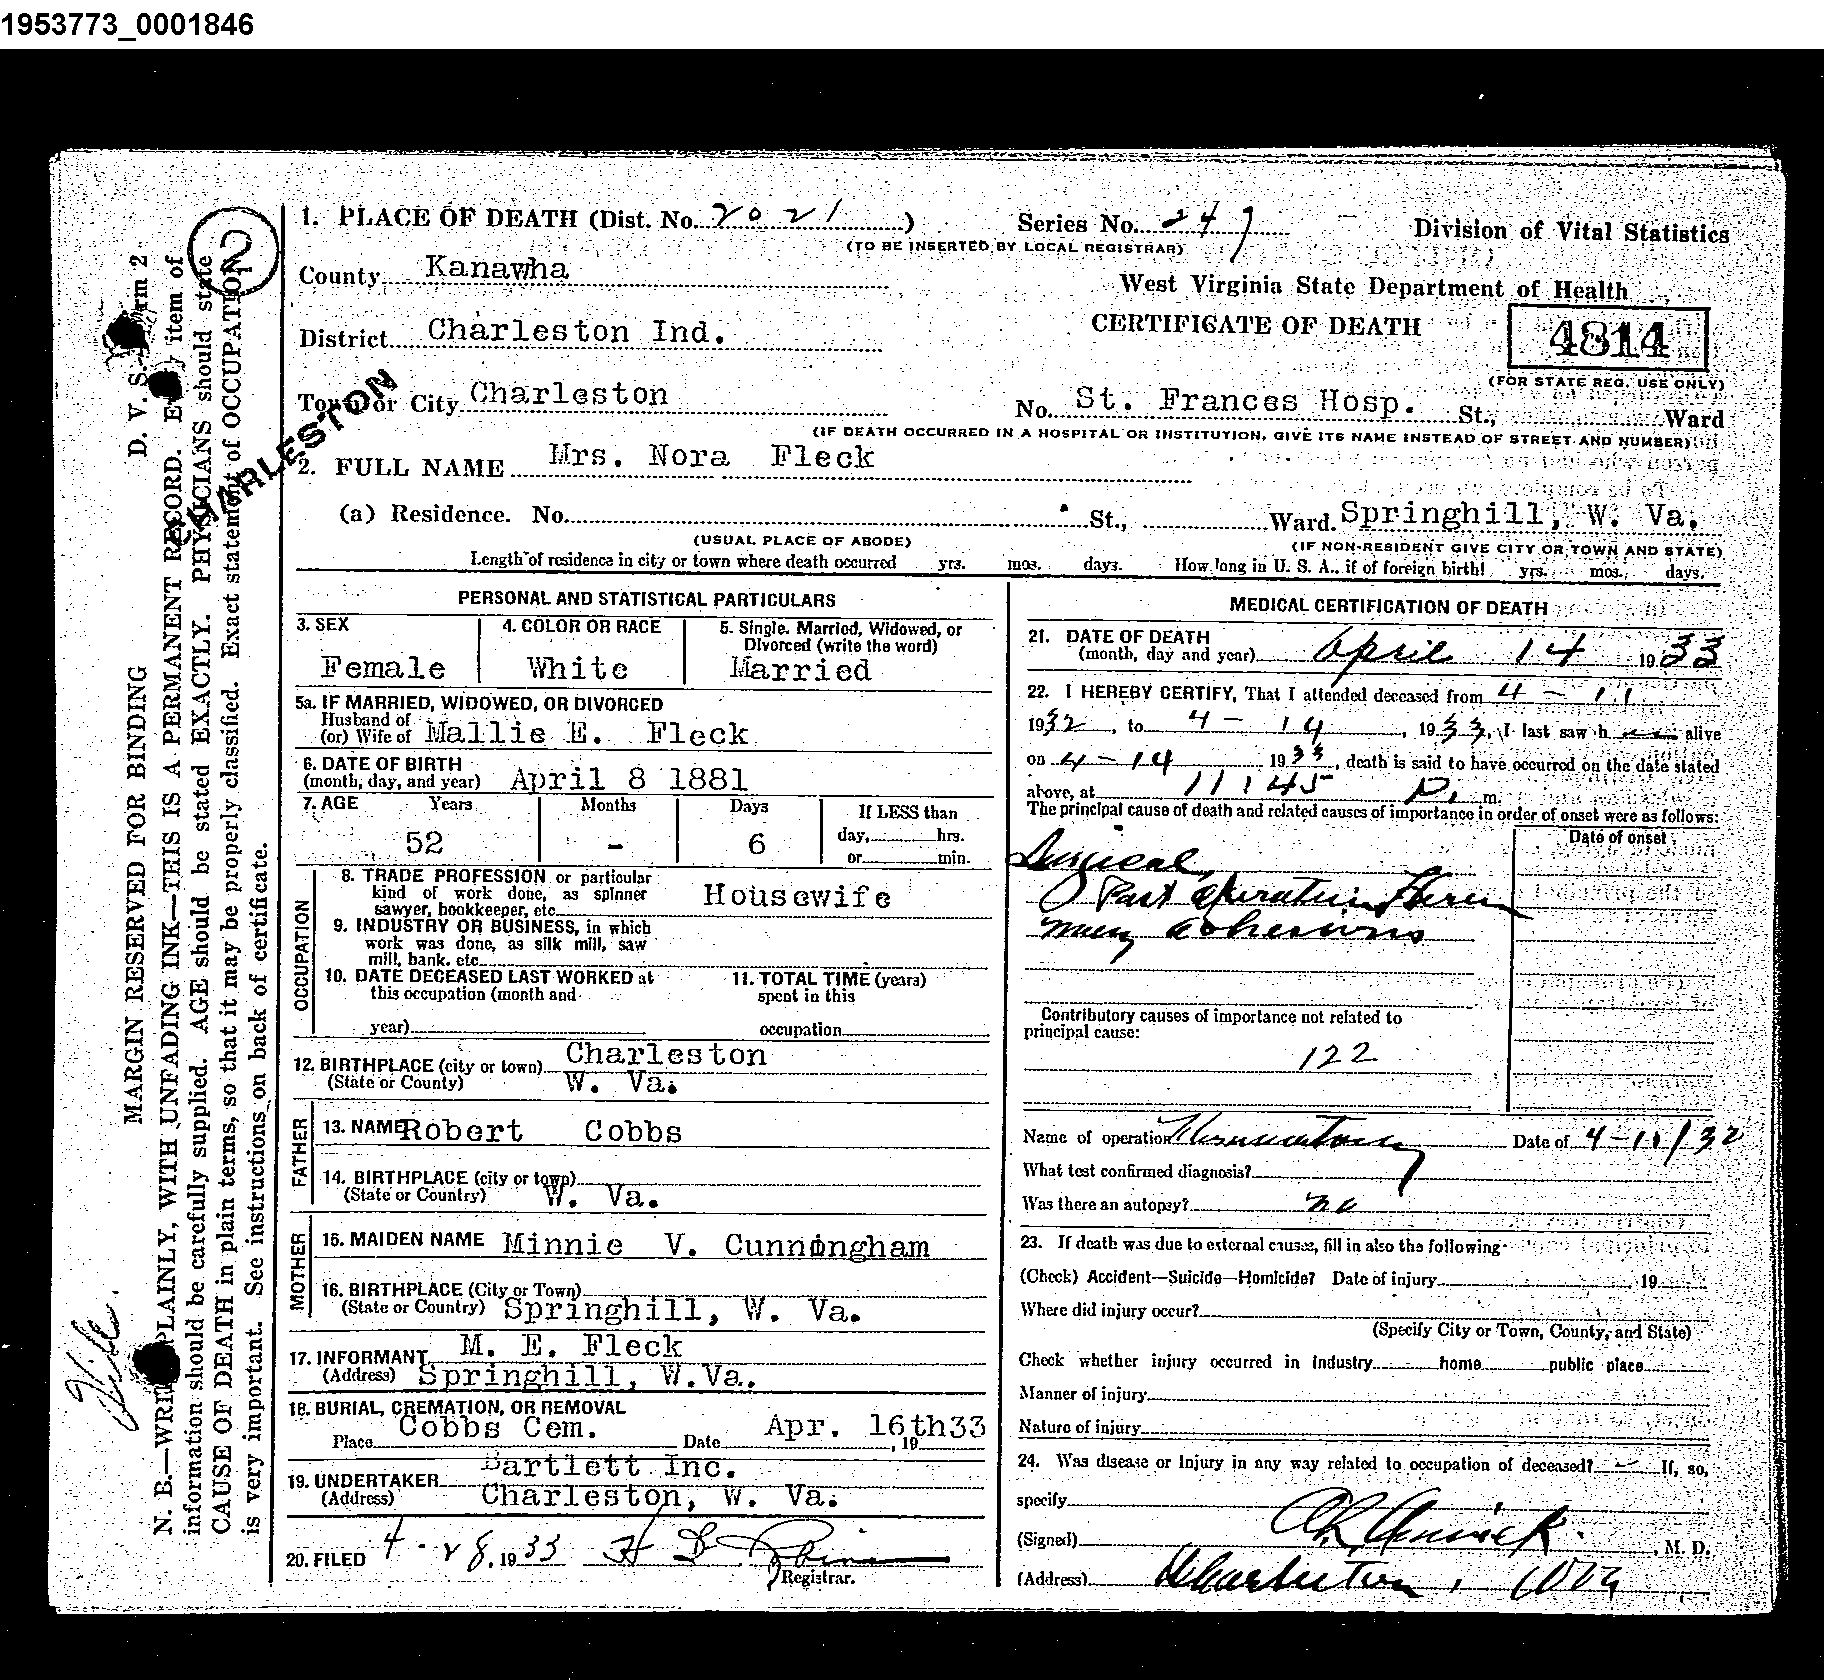 1953773_0001846
1. PLACE OF DEATH (Dist. No. 2021 ) Series No. 247 Division of Vital Statistics
(TO BE INSERTED BY LOCAL REGISTRAR)
County Kanawha West Virginia State Department of Health
District Charleston Ind. CERTIFICATE OF DEATH 4814
(FOR STATE REG. USE ONLY)
Town or City Charleston No. St. Frances Hosp. St., Ward
(IF DEATH OCCURRED IN A HOSPITAL OR INSTITUTION, GIVE ITS NAME INSTEAD OF STREET AND NUMBER)
CHARLESTON
2. FULL NAME Mrs. Nora Fleck
(a) Residence. No. St., Ward. Springhill, W. Va.
(USUAL PLACE OF ABODE) (IF NON-RESIDENT GIVE CITY OR TOWN AND STATE)
Length of residence in city or town where death occurred yrs. mos. days. How long in U. S. A., if of foreign birth! yrs. mos. days.
PERSONAL AND STATISTICAL PARTICULARS
3. SEX 4. COLOR OR RACE 5. Single. Married, Widowed, or
Divorced (write the word)
Female White Married
5a. IF MARRIED, WIDOWED, OR DIVORCED
Husband of
(or) Wife of Mallie E. Fleck
6. DATE OF BIRTH
(month, day, and year) April 8 1881
7. AGE Years Months Days If LESS than
52 - 6 day, hrs.
or min.
OCCUPATION
8. TRADE PROFESSION or particular
kind of work done, as spinner
sawyer, bookkeeper, etc. Housewife
9. INDUSTRY OR BUSINESS, in which
work was done, as silk mill, saw
mill, bank. etc.
10. DATE DECEASED LAST WORKED at
this occupation (month and
year)
11. TOTAL TIME (years)
spent in this
occupation
12. BIRTHPLACE (city or town) Charleston
(State or County) W. Va.
FATHER
13. NAME Robert Cobbs
14. BIRTHPLACE (city or town)
(State or Country) W. Va.
MOTHER
15. MAIDEN NAME Minnie V. Cunningham
16. BIRTHPLACE (City or Town)
(State or Country) Springhill, W. Va.
17. INFORMANT M. E. Fleck
(Address) Springhill, W.Va.
18. BURIAL, CREMATION, OR REMOVAL
Place Cobbs Cem. Date Apr. 16th , 19 33
19. UNDERTAKER Bartlett Inc.
(Address) Charleston, W. Va.
20. FILED 4-28, 19 33 H B
Registrar.
MEDICAL CERTIFICATION OF DEATH
21. DATE OF DEATH
(month, day and year) April 14 19 33
22. I HEREBY CERTIFY, That I attended deceased from 4-11
1932, to 4-14, 1933, I last saw h alive
on 4-14 1933, death is said to have occurred on the date stated
above, at 11:45 P. m.
The principal cause of death and related causes of importance in order of onset were as follows:
Date of onset
Surgical
Post Operation
many adhesions
Contributory causes of importance not related to
principal cause:
122
Name of operation Date of 4-11/32
What test confirmed diagnosis?
Was there an autopsy? no
23. If death was due to external causes, fill in also the following
(Check) Accident—Suicide—Homicide? Date of injury 19
Where did injury occur?
(Specify City or Town, County, and State)
Check whether injury occurred in industry home public place
Manner of injury
Nature of injury
24. Was disease or injury in any way related to occupation of deceased? - If, so,
specify
(Signed) , M. D.
(Address) Charleston, W Va
2
D. V. S. Form 2
MARGIN RESERVED FOR BINDING
N. B.—WRITE PLAINLY, WITH UNFADING INK—THIS IS A PERMANENT RECORD. Every item of
information should be carefully supplied. AGE should be stated EXACTLY. PHYSICIANS should state
CAUSE OF DEATH in plain terms, so that it may be properly classified. Exact statement of OCCUPATION
is very important. See instructions on back of certificate.